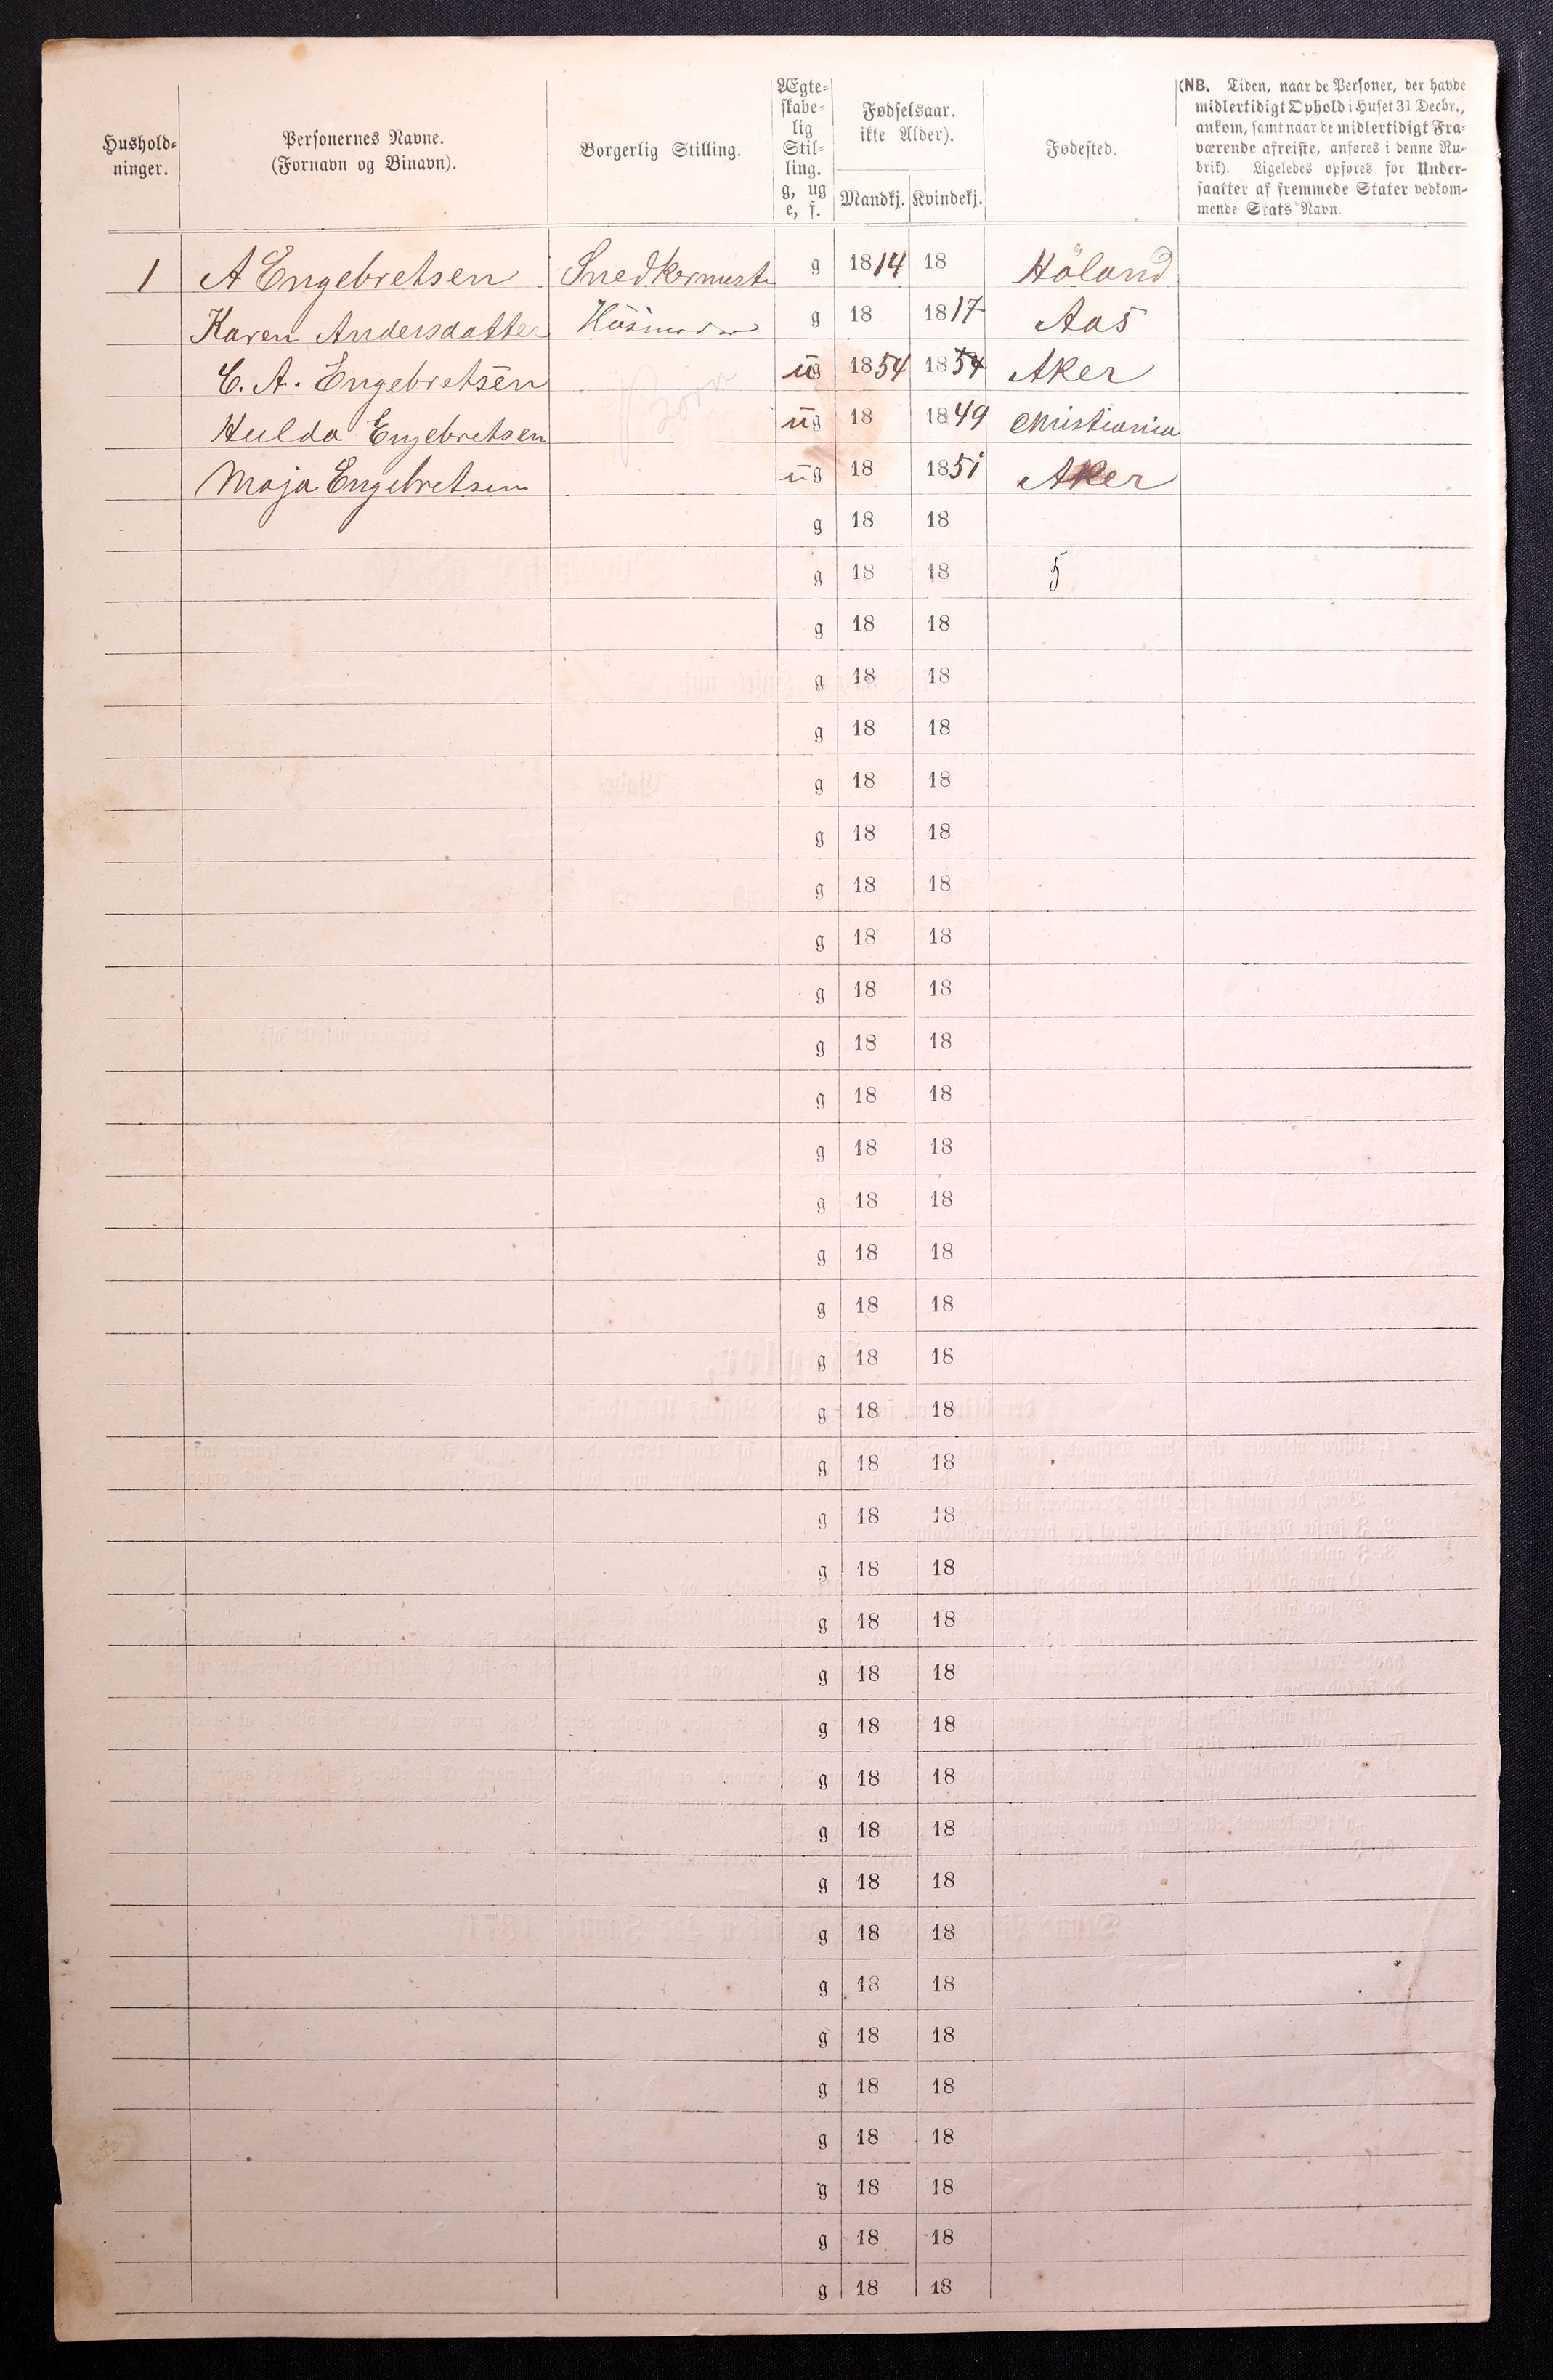 Hushold-
ninger.
Personernes Navne.
(Fornavn og Binavn).
Borgerlig Stilling.
Ægte-
skabe-
lig
Stil-
ling.
g, ug
e, f.
Fødselsaar.
ikke Alder).
Mandkj. Kvindekj.
Fødested.
(NB. Tiden, naar de Personer, der havde
midlertidigt Ophold i Huset 31 Decbr.,
ankom, samt naar de midlertidigt Fra-
værende afreiste, anføres i denne Ru-
brik). Ligeledes opføres for Under-
saatter af fremmede Stater vedkom-
mende Stats Navn.
1 A Engebretsen Snedkermest g 1814 18 Höland
Karen Andersdatter g 18 1817 Aas
C. A. Engebretsen ug 1854 1854 Aker
Hulda Engebretsen ug 18 1849 Christiania
Maja Engebretsen ug 18 1851 Aker
g 18 18
g 18 18 5
g 18 18
g 18 18
g 18 18
g 18 18
g 18 18
g 18 18
g 18 18
g 18 18
g 18 18
g 18 18
g 18 18
g 18 18
g 18 18
g 18 18
g 18 18
g 18 18
g 18 18
g 18 18
g 18 18
g 18 18
g 18 18
g 18 18
g 18 18
g 18 18
g 18 18
g 18 18
g 18 18
g 18 18
g 18 18
g 18 18
g 18 18
g 18 18
g 18 18